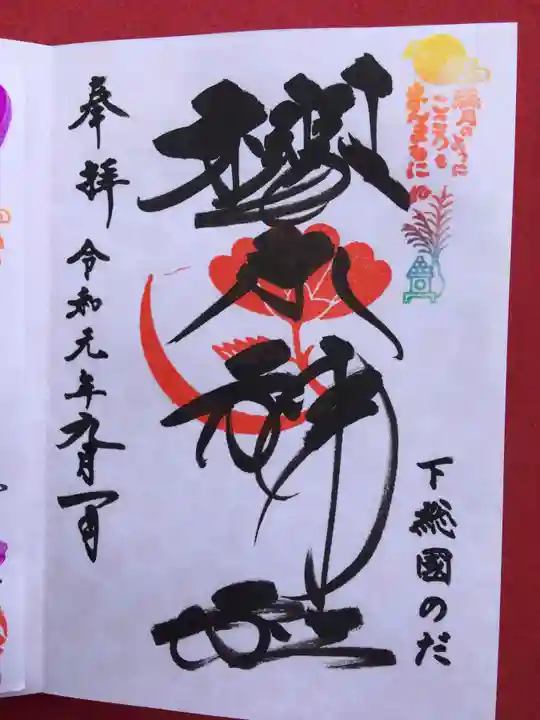 満月のように
こころも
まんまるに
下総國のだ
櫻木神社
奉拝 令和元年九月一日